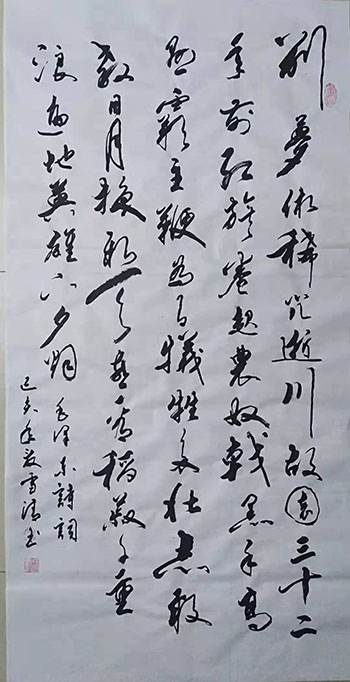 别夢依稀咒逝川故園三十二
年前红旗卷起農奴戟黑手高
悬霸主鞭为有犧牲多壮志敢
教日月换新天喜看稻菽千重
浪遍地英雄下夕烟
毛泽东詩詞
己亥年雪书